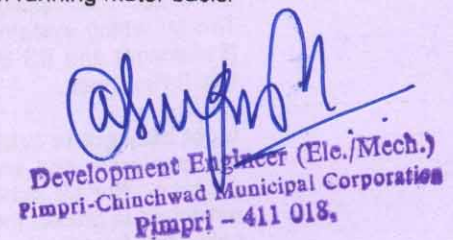 running meter
Development Engineer (Ele./Mech.)
Pimpri-Chinchwad Municipal Corporation
Pimpri - 411 018.